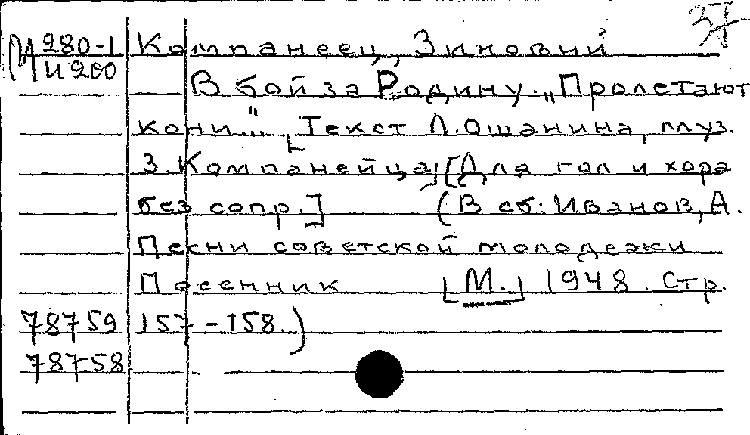 37
М 280-1 Компанеец, Зиновий
И 200
В бой за Родину. „Пролетают
кони..." [Текст Л. Ошанина, муз.
З. Компанейца] [Для гол и хора
без сопр.] (В сб: Иванов, А.
Песни советской молодежи
Песенник [М.] 1948. Стр.
78759 157-158.)
78758